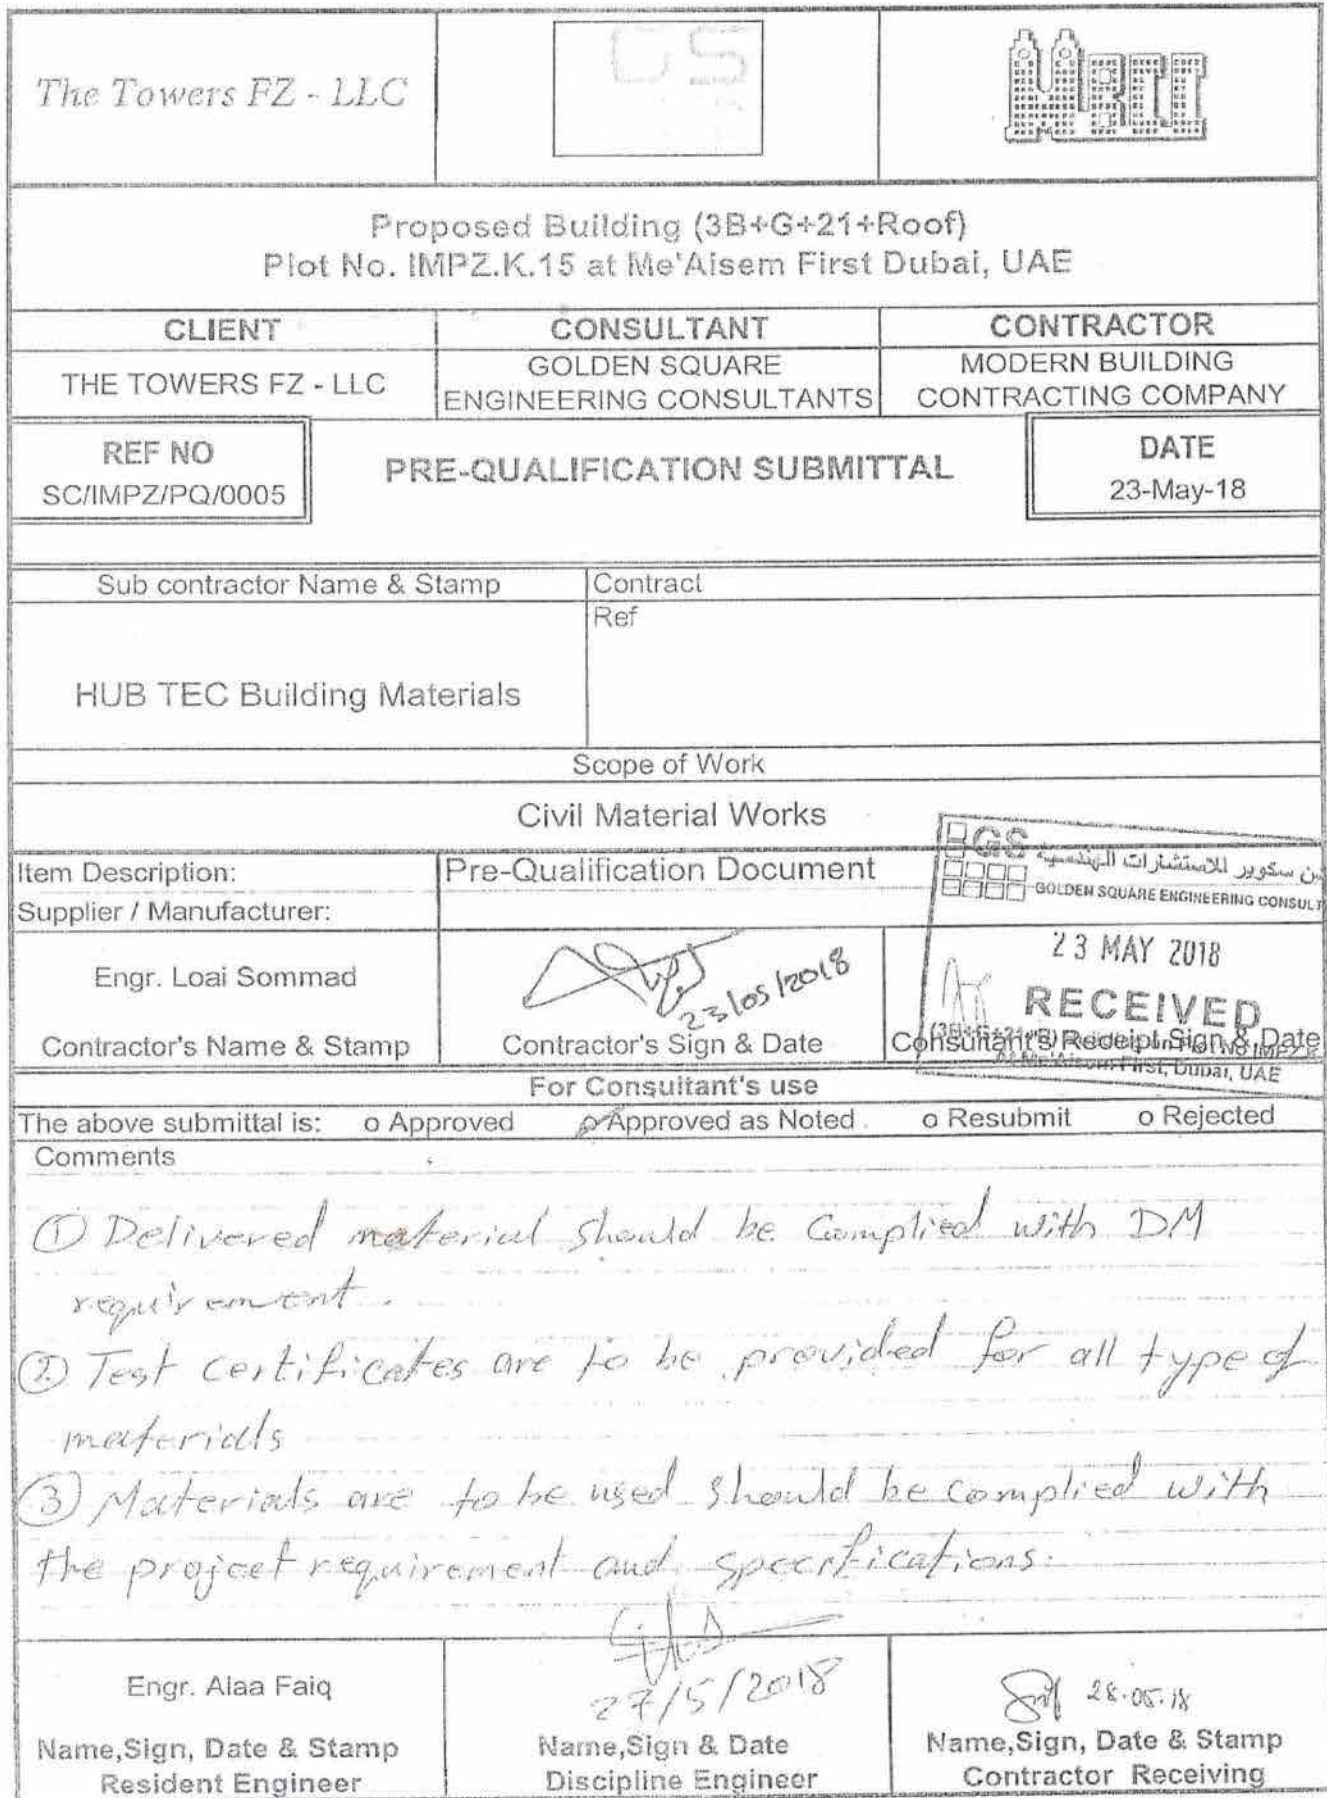 The Towers FZ - LLC
GS
MBCC
Proposed Building (3B+G+21+Roof)
Plot No. IMPZ.K.15 at Me'Aisem First Dubai, UAE
CLIENT
CONSULTANT
CONTRACTOR
THE TOWERS FZ - LLC
GOLDEN SQUARE
ENGINEERING CONSULTANTS
MODERN BUILDING
CONTRACTING COMPANY
REF NO
SC/IMPZ/PQ/0005
PRE-QUALIFICATION SUBMITTAL
DATE
23-May-18
Sub contractor Name & Stamp
Contract
Ref
HUB TEC Building Materials
Scope of Work
Civil Material Works
Item Description:
Pre-Qualification Document
Supplier / Manufacturer:
GS
ن سكوير للاستشارات الهندسية
GOLDEN SQUARE ENGINEERING CONSULT
23 MAY 2018
RECEIVED
At Me'Aisem First, Dubai, UAE
Engr. Loai Sommad
23/05/2018
Contractor's Name & Stamp
Contractor's Sign & Date
Consultant's Receipt Sign & Date
For Consultant's use
The above submittal is: o Approved o Approved as Noted o Resubmit o Rejected
Comments
① Delivered material should be Complied with DM
requirement.
② Test Certificates are to be provided for all type of
materials
③ Materials are to be used should be Complied with
the project requirement and specifications.
Engr. Alaa Faiq
27/5/2018
28.05.18
Name,Sign, Date & Stamp
Resident Engineer
Name,Sign & Date
Discipline Engineer
Name,Sign, Date & Stamp
Contractor Receiving